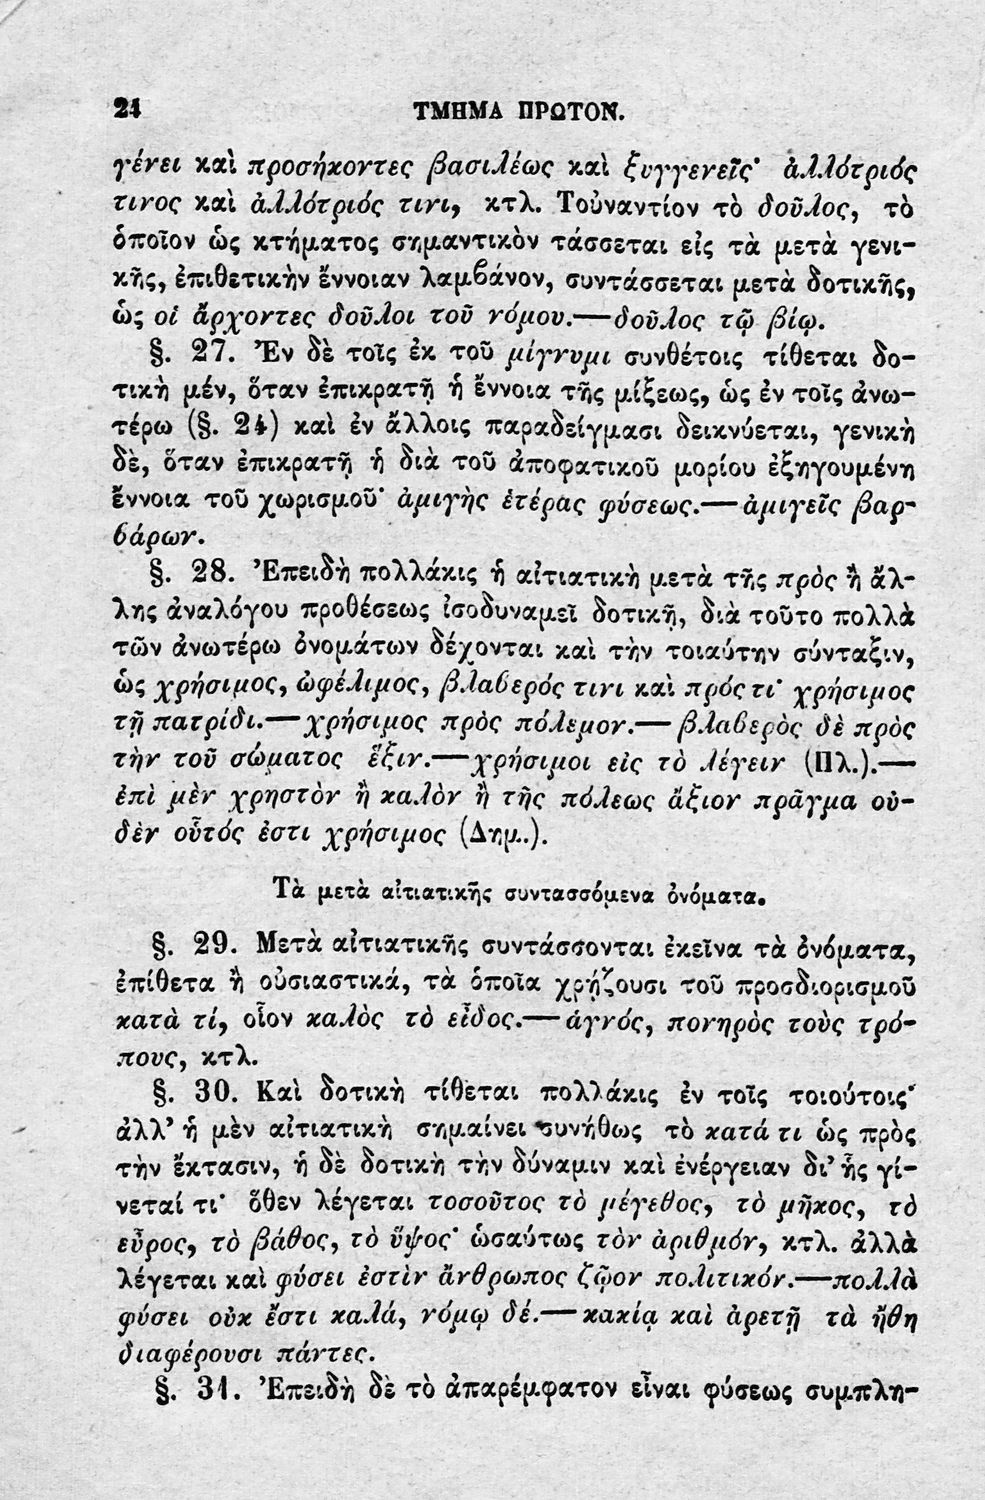 24 ΤΜΗΜΑ ΠΡΩΤΟΝ.
γένει καὶ προσήκοντες βασιλέως καὶ ξυγγενεῖς· ἀλλότριός
τινος καὶ ἀλλότριός τινι, κτλ. Τοὐναντίον τὸ δοῦλος, τὸ
ὁποῖον ὡς κτήματος σημαντικὸν τάσσεται εἰς τὰ μετὰ γενι-
κῆς, ἐπιθετικὴν ἔννοιαν λαμβάνον, συντάσσεται μετὰ δοτικῆς,
ὡς οἱ ἄρχοντες δοῦλοι τοῦ νόμου.—δοῦλος τῷ βίῳ.
§. 27. Ἐν δὲ τοῖς ἐκ τοῦ μίγνυμι συνθέτοις τίθεται δο-
τικὴ μέν, ὅταν ἐπικρατῇ ἡ ἔννοια τῆς μίξεως, ὡς ἐν τοῖς ἀνω-
τέρω (§. 24) καὶ ἐν ἄλλοις παραδείγμασι δεικνύεται, γενικὴ
δὲ, ὅταν ἐπικρατῇ ἡ διὰ τοῦ ἀποφατικοῦ μορίου ἐξηγουμένη
ἔννοια τοῦ χωρισμοῦ· ἀμιγὴς ἑτέρας φύσεως.—ἀμιγεῖς βαρ-
βάρων.
§. 28. Ἐπειδὴ πολλάκις ἡ αἰτιατικὴ μετὰ τῆς πρὸς ἢ ἄλ-
λης ἀναλόγου προθέσεως ἰσοδυναμεῖ δοτικῇ, διὰ τοῦτο πολλὰ
τῶν ἀνωτέρω ὀνομάτων δέχονται καὶ τὴν τοιαύτην σύνταξιν,
ὡς χρήσιμος, ὠφέλιμος, βλαβερός τινι καὶ πρός τι· χρήσιμος
τῇ πατρίδι.—χρήσιμος πρὸς πόλεμον.—βλαβερὸς δὲ πρὸς
τὴν τοῦ σώματος ἕξιν.—χρήσιμοι εἰς τὸ λέγειν (Πλ.).—
ἐπὶ μὲν χρηστὸν ἢ καλὸν ἢ τῆς πόλεως ἄξιον πρᾶγμα οὐ-
δὲν οὗτός ἐστι χρήσιμος (Δημ.).
Τὰ μετὰ αἰτιατικῆς συντασσόμενα ὀνόματα.
§. 29. Μετὰ αἰτιατικῆς συντάσσονται ἐκεῖνα τὰ ὀνόματα,
ἐπίθετα ἢ οὐσιαστικά, τὰ ὁποῖα χρῄζουσι τοῦ προσδιορισμοῦ
κατὰ τί, οἷον καλὸς τὸ εἶδος.—ἁγνός, πονηρὸς τοὺς τρό-
πους, κτλ.
§. 30. Καὶ δοτικὴ τίθεται πολλάκις ἐν τοῖς τοιούτοις·
ἀλλ' ἡ μὲν αἰτιατικὴ σημαίνει συνήθως τὸ κατά τι ὡς πρὸς
τὴν ἔκτασιν, ἡ δὲ δοτικὴ τὴν δύναμιν καὶ ἐνέργειαν δι' ἧς γί-
νεταί τι· ὅθεν λέγεται τοσοῦτος τὸ μέγεθος, τὸ μῆκος, τὸ
εὖρος, τὸ βάθος, τὸ ὕψος· ὡσαύτως τὸν ἀριθμόν, κτλ. ἀλλὰ
λέγεται καὶ φύσει ἐστὶν ἄνθρωπος ζῷον πολιτικόν.—πολλὰ
φύσει οὐκ ἔστι καλά, νόμῳ δέ.—κακίᾳ καὶ ἀρετῇ τὰ ἤθη
διαφέρουσι πάντες.
§. 31. Ἐπειδὴ δὲ τὸ ἀπαρέμφατον εἶναι φύσεως συμπλη-